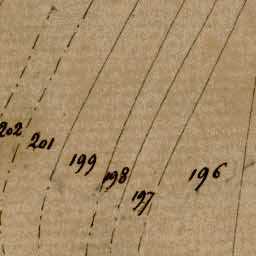 202
201
199
198
197
196